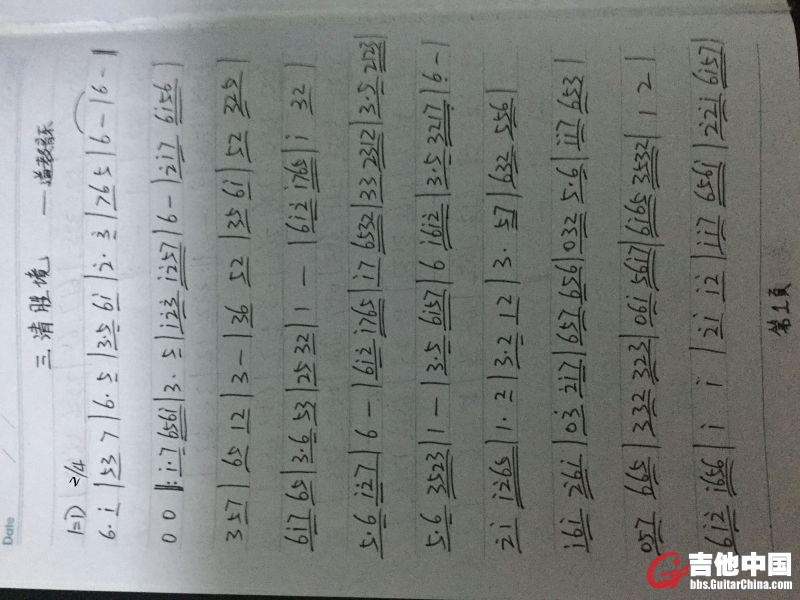 Date
三清胜境 — 道教音乐
1=D 2/4
6· i | 53 7 | 6· 5 | 3·5 6i | 2· 3 | 765 | 6 - | 6 - |
0 0 ‖: i·7 656i | 3· 5 | i23 i257 | 6 - | 2i7 6156 |
357 | 65 12 | 3 - | 36 52 | 35 6i | 52 325 |
6i7 65 | 3·6 53 | 25 32 | 1 - | 6i2 i765 | i 32 |
5·6 i27 | 6 - | 6i2 1765 | i7 6532 | 33 2312 | 3·5 2123 |
5·6 3523 | 1 - | 3·5 6157 | 6 i6i2 | 3·5 3217 | 6 - |
2i i265 | 1·2 | 3·2 12 | 3· 57 | 632 556 |
i6i 26i | 03 2i7 | 657 656 | 032 5·6 | ii7 653 |
057 665 | 332 323 | 06i 5617 | 6i65 3532 | 1 2 |
6i2 i656 | i i | 2i i2 | ii7 656i | 22i 6157 |
第1页
吉他中国
bbs.GuitarChina.com